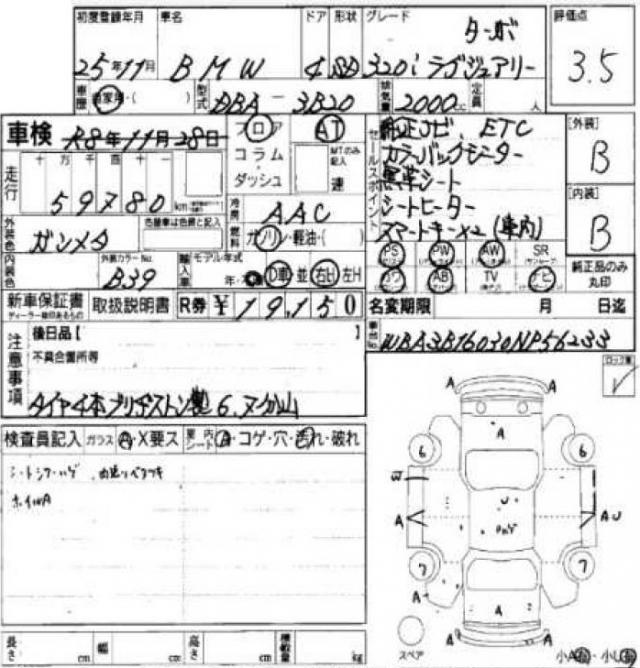 初度登録年月 車名 ドア 形状 グレード 評価点
ターボ
25年11月 BMW 4 SD 320i ラグジュアリー 3.5
車歴 自家用・( ) 型式 DBA-3B20 排気量 2000cc 定員 人
車検 R8年11月28日 フロア AT
コラム・ダッシュ MTのみ記入 速
走行 十 万 千 百 十
59780 km
セールスポイント
純正ナビ、ETC
カラーバックモニター
黒革シート
シートヒーター
スマートキー×2(車内)
[外装]
B
[内装]
B
冷房 AAC
外装色 ガンメタ 色替車は色替と記入
燃料 ガソリン・軽油・( )
内装色 外装カラーNo. B39
輸入車 モデル年式 年・ D車 並 右H 左H
PS PW AW SR
カワ AB TV ナビ
純正品のみ丸印
新車保証書 取扱説明書 R券 ¥19,150
ディーラー捺印あるもの
名変期限 月 日迄
車台No. WBA3B16030NP56233
注意事項
後日品【 】
不具合箇所等
タイヤ4本ブリヂストン製 6.7分山
ロック車
検査員記入 ガラス A・X要ス 内 シート コゲ・穴・汚れ・破れ
ホイールA
A A
A
6 6
W
U
A AU
7 7
A
A
A A
スペア
小A 小U
長さ cm 幅 cm 高さ cm 積載量 kg